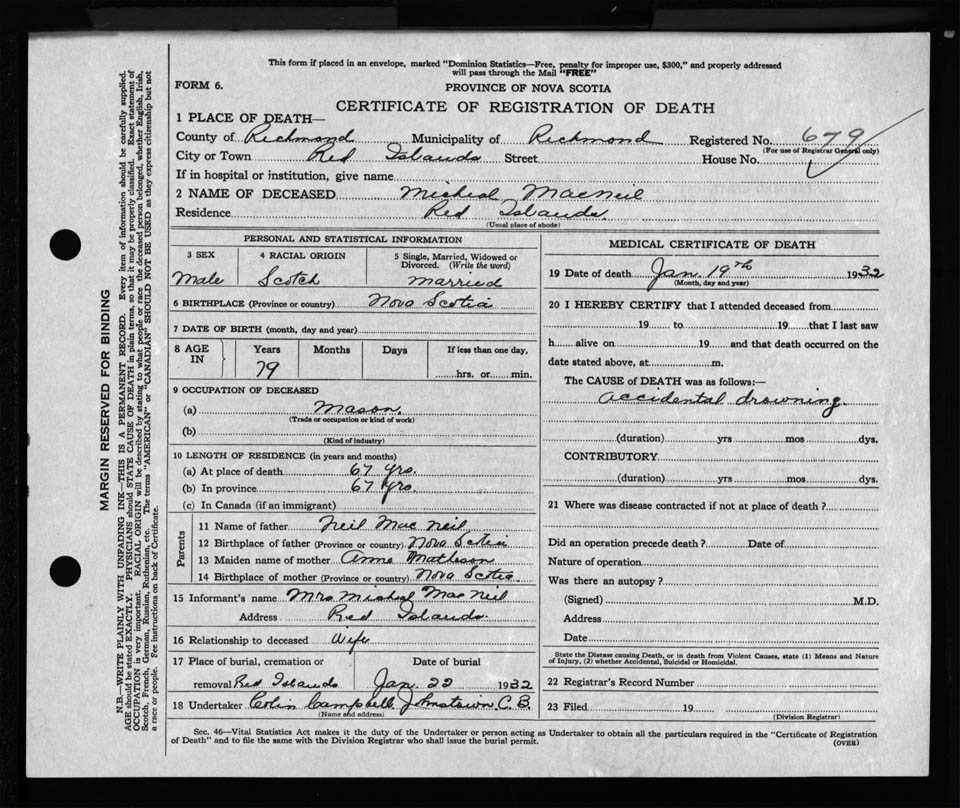 This form if placed in an envelope, marked "Dominion Statistics—Free, penalty for improper use, $300," and properly addressed
will pass through the Mail "FREE"
FORM 6.
PROVINCE OF NOVA SCOTIA
CERTIFICATE OF REGISTRATION OF DEATH
1 PLACE OF DEATH—
County of Richmond Municipality of Richmond Registered No. 679
(For use of Registrar General only)
City or Town Red Islands Street House No.
If in hospital or institution, give name
2 NAME OF DECEASED Micheal MacNeil
Residence Red Islands
(Usual place of abode)
PERSONAL AND STATISTICAL INFORMATION
3 SEX 4 RACIAL ORIGIN 5 Single, Married, Widowed or
Divorced. (Write the word)
Male Scotch Married
6 BIRTHPLACE (Province or country) Nova Scotia
7 DATE OF BIRTH (month, day and year)
8 AGE IN Years Months Days If less than one day,
79 hrs. or min.
9 OCCUPATION OF DECEASED
(a) Mason
(Trade or occupation or kind of work)
(b)
(Kind of industry)
10 LENGTH OF RESIDENCE (in years and months)
(a) At place of death 67 yrs.
(b) In province 67 yrs.
(c) In Canada (if an immigrant)
Parents
11 Name of father Neil Mac Neil
12 Birthplace of father (Province or country) Nova Scotia
13 Maiden name of mother Anna Matheson
14 Birthplace of mother (Province or country) Nova Scotia
15 Informant's name Mrs Micheal Mac Neil
Address Red Islands
16 Relationship to deceased Wife
17 Place of burial, cremation or Date of burial
removal Red Islands Jan. 22 1932
18 Undertaker Colin Campbell Johnstown C.B.
(Name and address)
MEDICAL CERTIFICATE OF DEATH
19 Date of death Jan. 19th 1932
(Month, day and year)
20 I HEREBY CERTIFY that I attended deceased from
19 to 19 that I last saw
h alive on 19 and that death occurred on the
date stated above, at m.
The CAUSE of DEATH was as follows:—
accidental drowning.
(duration) yrs mos dys.
CONTRIBUTORY
(duration) yrs mos dys.
21 Where was disease contracted if not at place of death?
Did an operation precede death? Date of
Nature of operation
Was there an autopsy?
(Signed) M.D.
Address
Date
State the Disease causing Death, or in death from Violent Causes, state (1) Means and Nature
of Injury, (2) whether Accidental, Suicidal or Homicidal.
22 Registrar's Record Number
23 Filed 19
(Division Registrar)
Sec. 46—Vital Statistics Act makes it the duty of the Undertaker or person acting as Undertaker to obtain all the particulars required in the "Certificate of Registration
of Death" and to file the same with the Division Registrar who shall issue the burial permit.
(OVER)
MARGIN RESERVED FOR BINDING
N.B.—WRITE PLAINLY WITH UNFADING INK—THIS IS A PERMANENT RECORD. Every item of information should be carefully supplied.
AGE should be stated EXACTLY. PHYSICIANS should STATE CAUSE OF DEATH in plain terms, so that it may be properly classified. Exact statement of
OCCUPATION is very important. RACIAL ORIGIN will be described by stating to what people or race the deceased person belonged, whether English, Irish,
Scotch, French, German, Russian, Ruthenian, etc. The terms "AMERICAN" or "CANADIAN" SHOULD NOT BE USED as they express citizenship but not
a race or people. See instructions on back of Certificate.